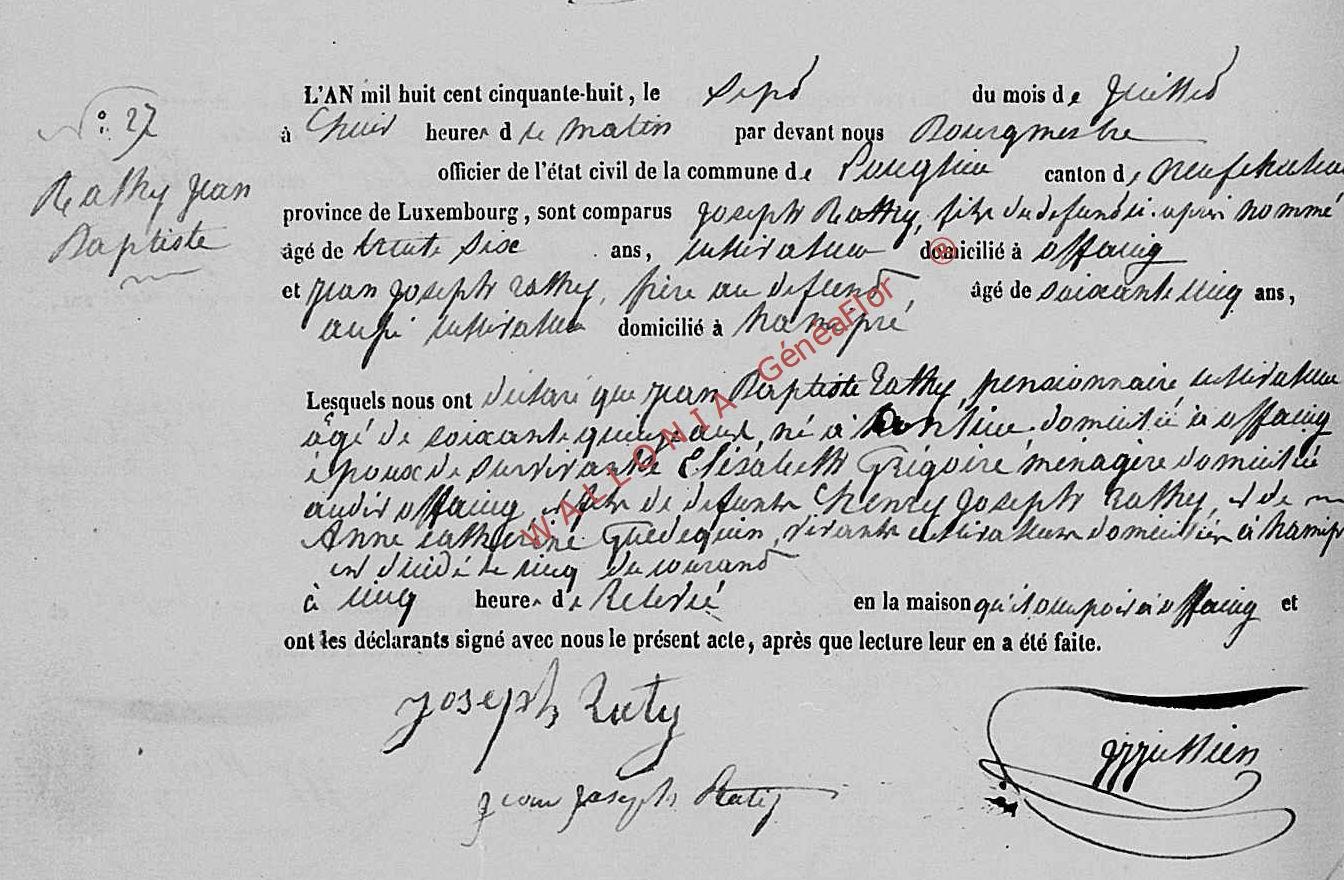 L'AN mil huit cent cinquante-huit, le sept du mois de juillet
n° 27
à huit heures d le matin par devant nous Bourgmestre
Rathy Jean
Baptiste
officier de l'état civil de la commune de canton de neufchateau
province de Luxembourg, sont comparus Joseph Rathy, fils du defunt ci-après nommé
âgé de trente six ans, cultivateur domicilié à offaing
et jean joseph rathy, frère au defunt, âgé de soixante cinq ans,
aussi cultivateur domicilié à hamipré
Lesquels nous ont déclaré que jean Baptiste Rathy, pensionnaire cultivateur
âgé de soixante quinze ans, né à domicilié à offaing
époux de survivante Elisabeth Grégoire ménagère domiciliée
audit offaing, et fils de defunts henry joseph rathy, et de
Anne catherine vivants cultivateurs domiciliés à hamipré
est décédé le cinq du courant
à cinq heures de relevée en la maison qu'il occupoit à offaing et
ont les déclarants signé avec nous le présent acte, après que lecture leur en a été faite.
Joseph Raty
jean joseph Raty
WALLONIA GénéaFlor ®